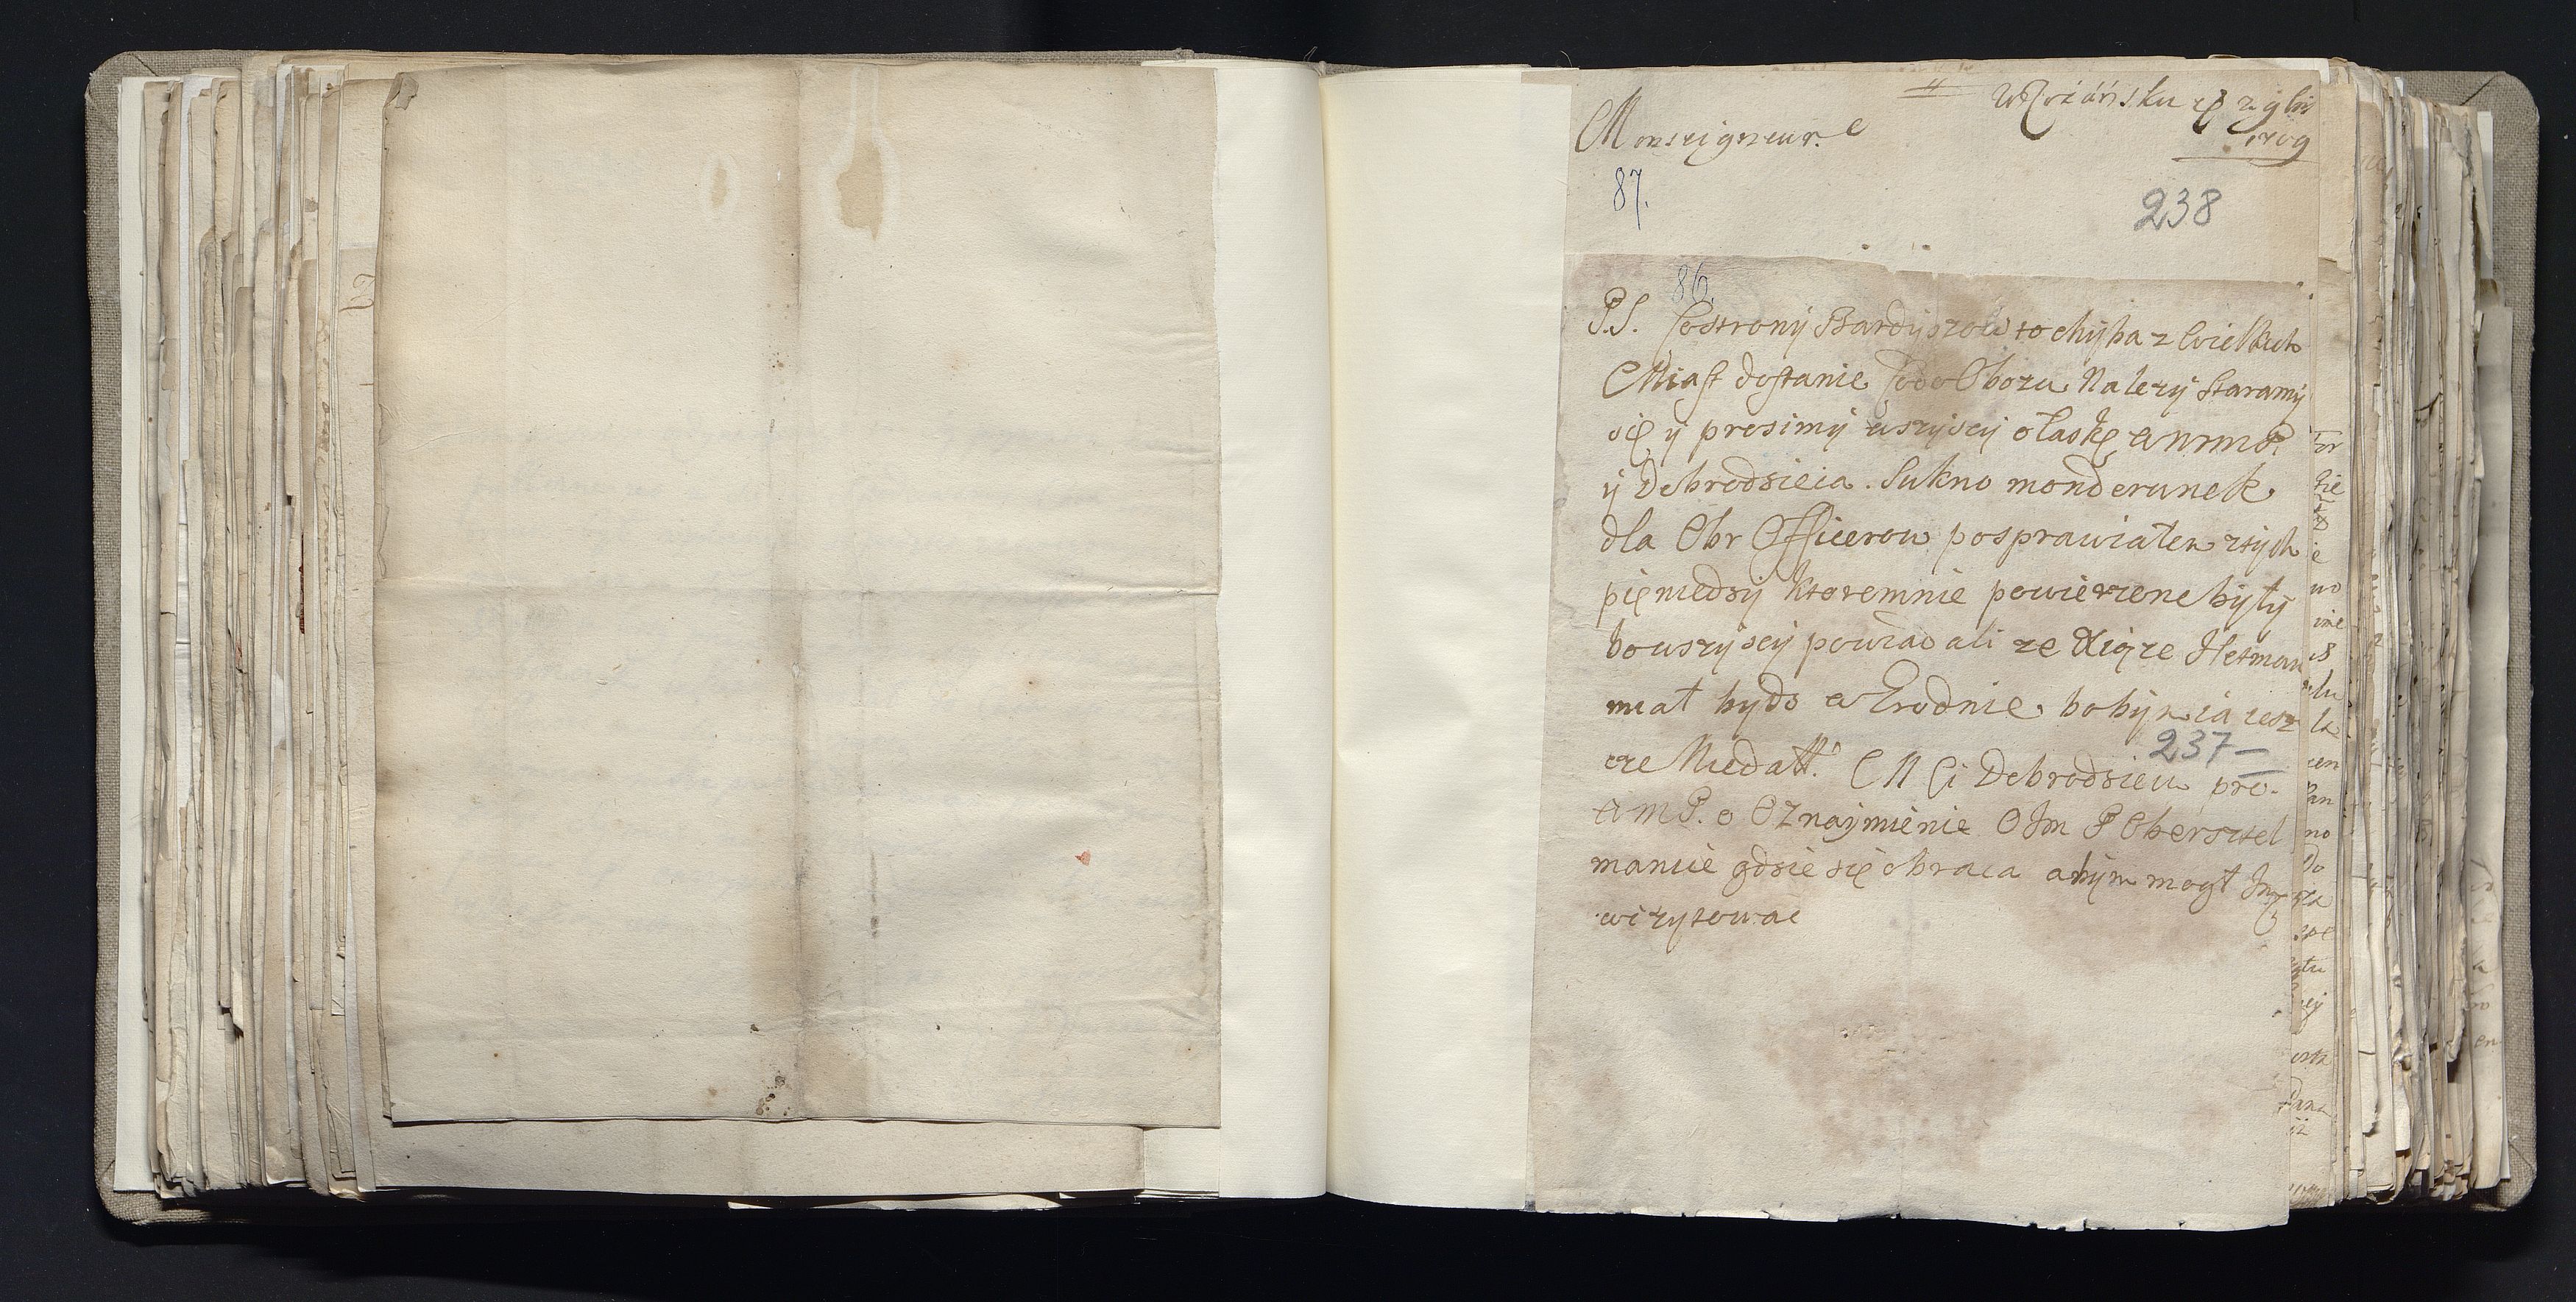 Monseigneur
87.
238
86.
P.S. Zostrony Bardyszow to chyba z Wielkich
Miast dostanie Codo Obozu Nalezy Staramy
się y prosimy wszyscy o łaskę WMM P
y Dobrodzieia. Sukno monderunek
dla Obr Officerow posprawiałem ztych
pięniedzy ktoremnie powierzone były
bo wszyscy powiadali ze Xiąze Hetman
miał bydz w Grodnie bobym ia iesz
cze Niedał. M Ci Dobrodzieiu pro.
237-
WMP. o Oznaymienie O Jm P Obersztel
mancie gdzie się obraca abym mogł Jmę
wizytowac